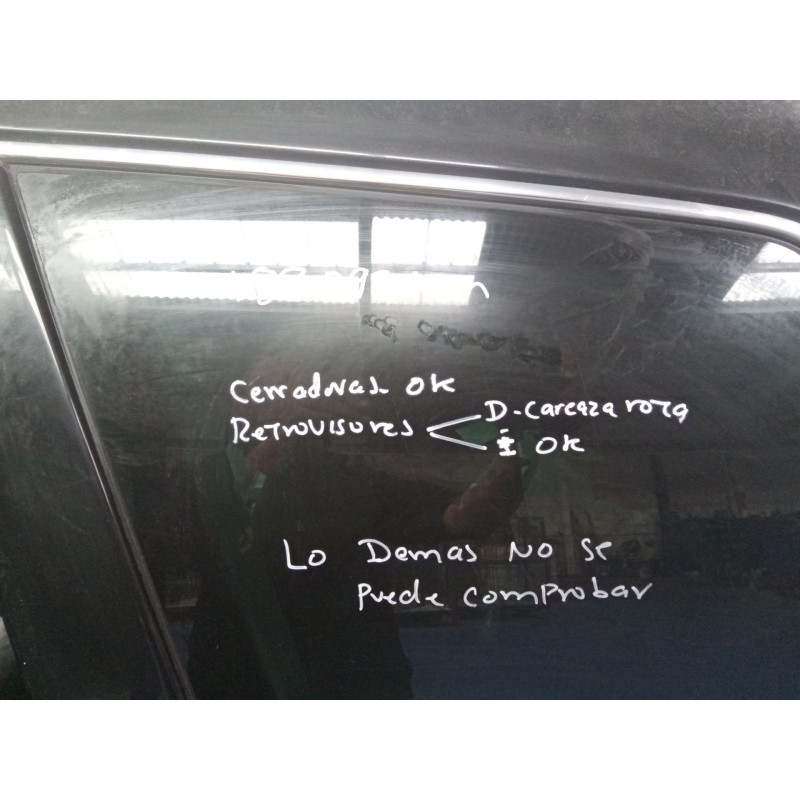 Cerraduras OK
Retrovisores D-Carcaza rota
I OK
Lo Demas No se
Puede comprobar